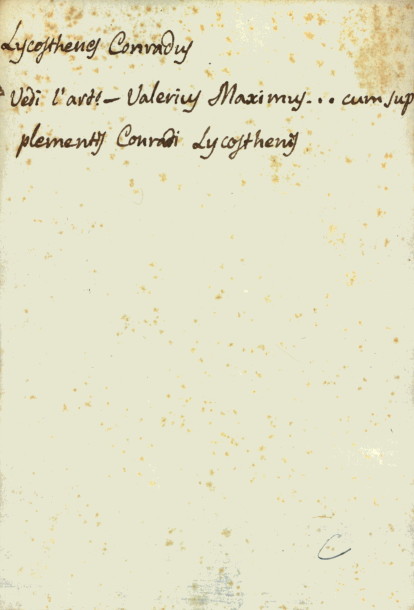 Lycosthenes Conradus
Vedi l'art: - Valerius Maximus... cum sup
plementis Conradi Lycosthenis
C